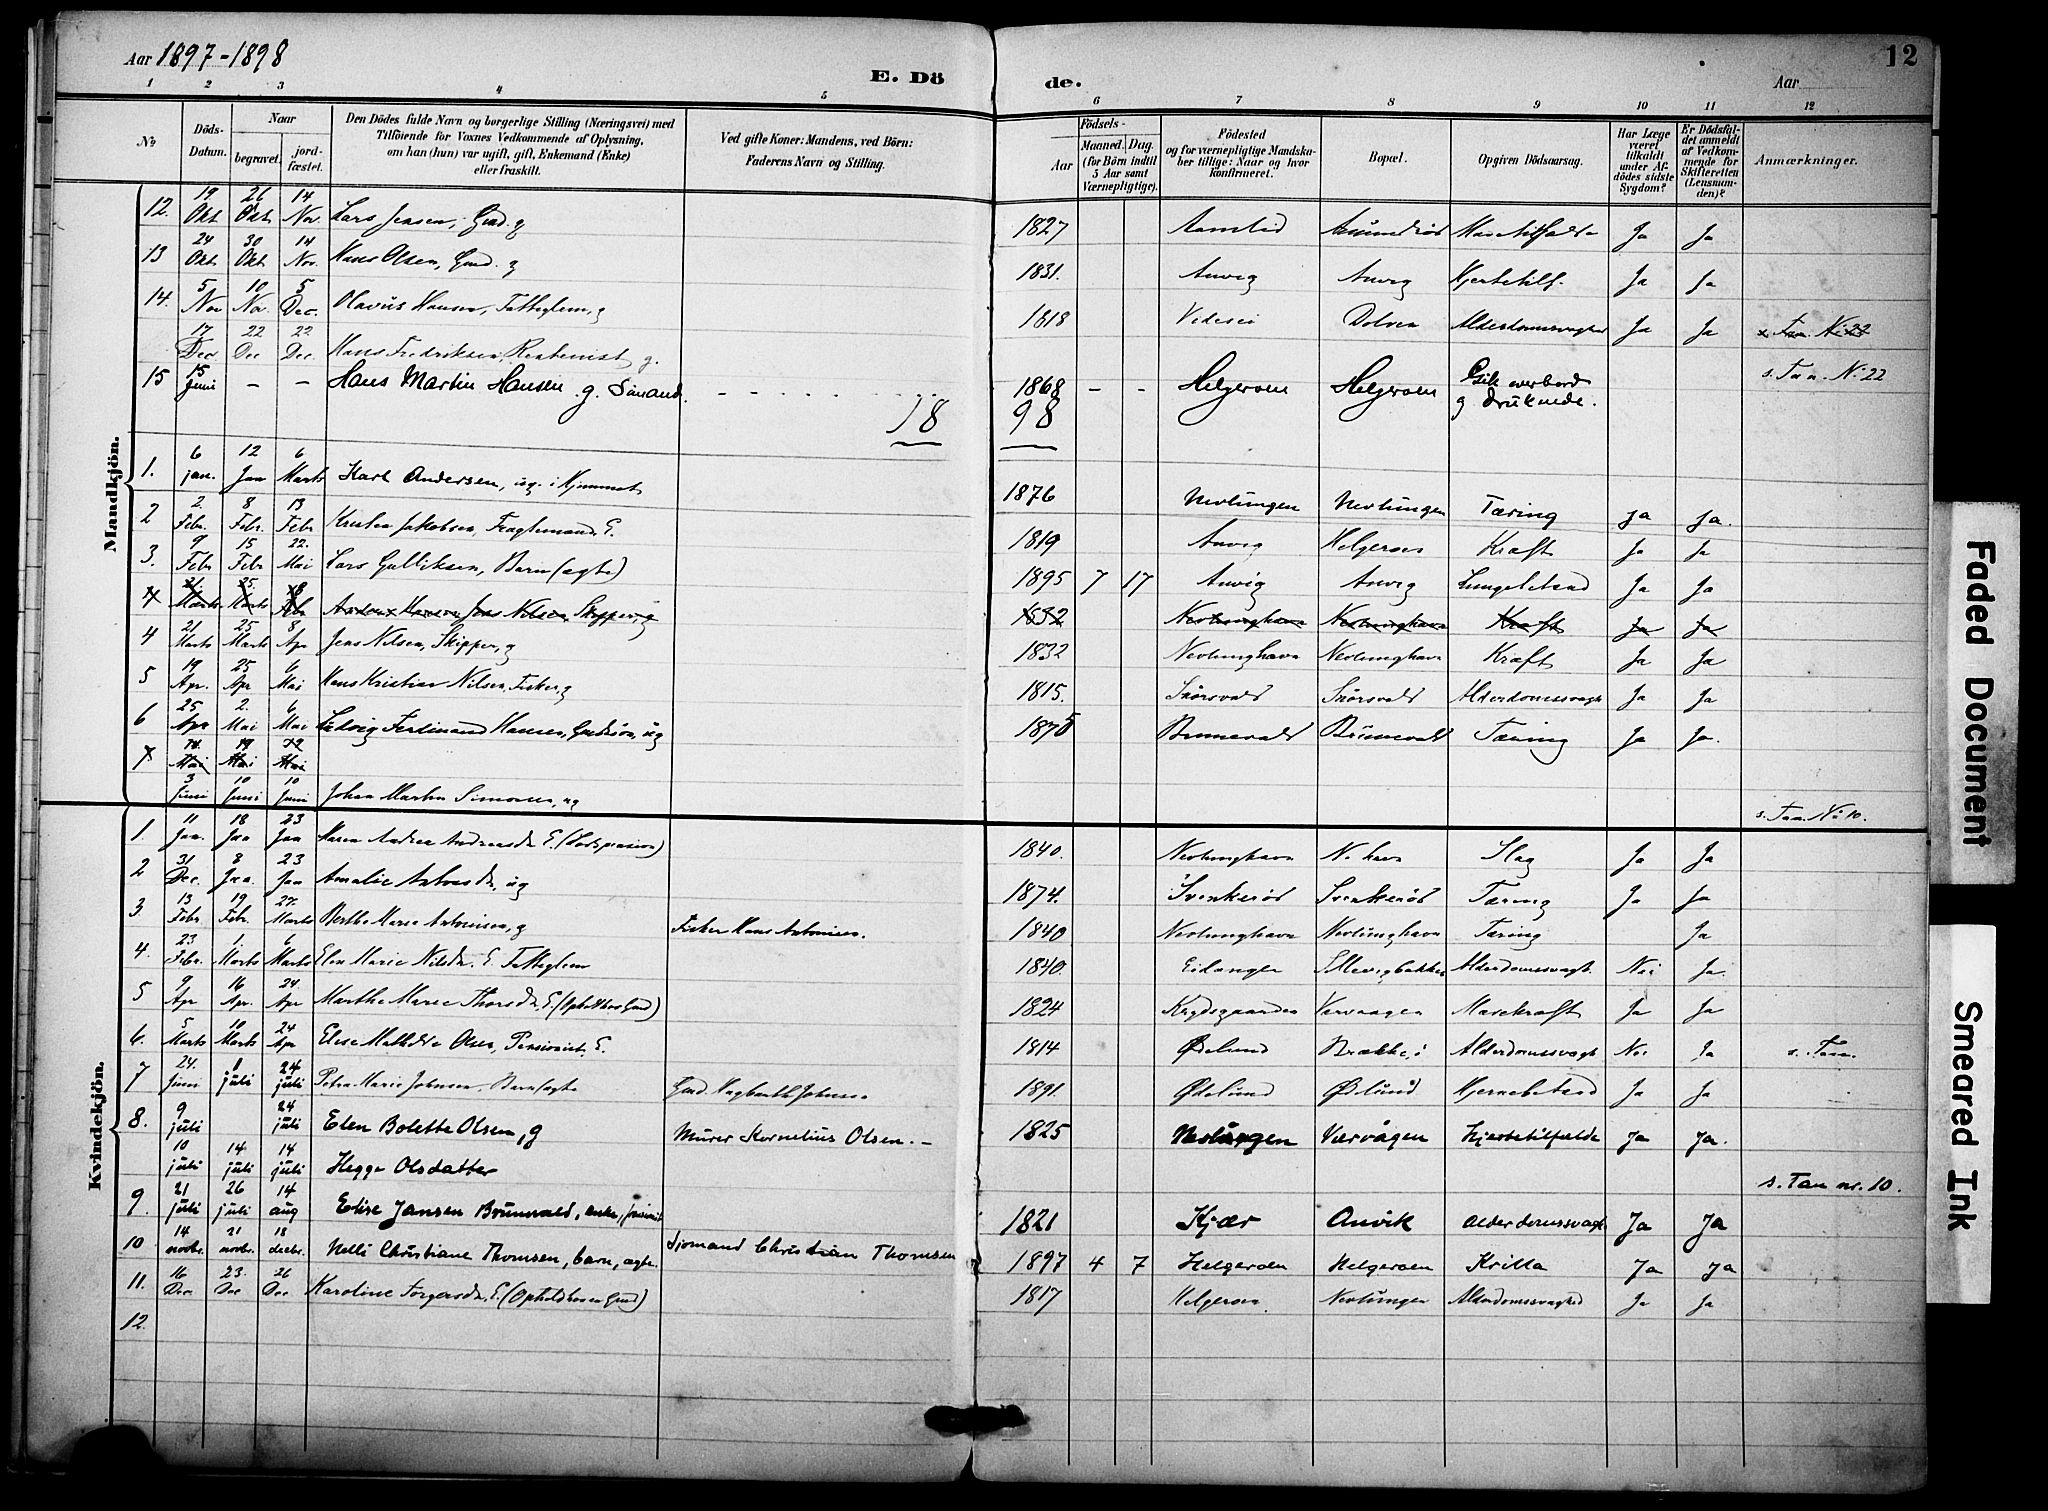 Aar 1897-1898
E. Dö
de.
Aar
12
1 2 3 4 5 6 7 8 9 10 11 12
No
Döds-Datum.
Naar
begravet. jordfæstet.
Den Dödes fulde Navn og borgerlige Stilling (Næringsvei) med
Tilföiende for Voxnes Vedkommende af Oplysning,
om han (hun) var ugift, gift, Enkemand (Enke)
eller fraskilt.
Ved gifte Koner: Mandens, ved Börn:
Faderens Navn og Stilling.
Födsels-
Aar
Maaned. Dag.
(for Börn indtil
5 Aar samt
Værnepligtige).
Födested
og for værnepligtige Mandska-
ber tillige: Naar og hvor
konfirmeret.
Bopæl.
Opgiven Dödsaarsag.
Har Læge
været
tilkaldt
under Af-
dödes sidste
Sygdom?
Er Dödsfal-
det anmeldt
af Vedkom-
mende for
Skifteretten
(Lensman-
den)?
Anmærkninger.
Mandkjön.
12. 19 Okt 26 Okt 14 Nov. Lars Jensen, Gmd. g 1827 Ja Ja
13 24 Okt 30 Okt 14 Nov. Hans Olsen, Gmd. g 1831. Anvig Anvig Hjertetilf. Ja Ja
14. 5 Nov 10 Nov. 5 Dec. Olavus Hansen, Fattiglem, g 1818 Dolven Alderdomssvaghed Ja Ja s. Tan. No 22
17 Dec 22 Dec 22 Dec. Hans Fredriksen, g. s. Tan. No 22
15 15 Juni - - Hans Martin Hansen g. Sömand. 1868 - - Helgeroen Helgeroen Gik overbord
g druknede.
18 98
1. 6 jan. 12 Jan 6 Marts Karl Andersen, ug. i Hjemmet 1876 Nevlungen Nevlungen Tæring ja ja.
2 2. Febr. 8 Febr. 13 Febr Kristen Jakobsen, E. 1819 Anvig Helgeroen Kræft Ja Ja
3. 9 Febr 15 Febr 22. Mai Lars Gulliksen, Barn (ægte) 1895 7 17 Anvig Anvig Ja Ja
4 21 Marts 25. Marts 8 Febr Anders Hansen Jens Nilsen Skipper, g 1832 Nevlunghavn Nevlunghavn Kræft Ja Ja
4 21 Marts 25 Marts 8 Apr Jens Nilsen, Skipper, g 1832 Nevlunghavn Nevlunghavn Kræft Ja Ja
5 19 Apr. 25 Apr 6 Mai Hans Kristian Nilsen, Fisker, g 1815. Skörsvald Skörsvald Alderdomssvagh Ja Ja
6 25 Apr 2. Mai 6 Mai Ludvig Ferdinand Hansen, Gmdsön, ug 1875 Brunevald Brunevald Tæring Ja Ja.
7 14 Mai 19 Mai Mai
3 Juni 10 Juni 10 Juni Johan Martin Simonsen, ug s. Tan. No 10.
Kvindekjön.
1. 11 Jan. 18 Jan 23 Jan Maren Andrea Andreasdr. E. 1840. Nevlunghavn N. havn Slag Ja Ja
2 31 Dec. 8 Jan. 23 Jan Amalie ug 1874. Svenkeröd Svenkeröd Tæring Ja Ja
3. 13 Febr 19 Febr. 27. Marts Berthe Marie Antonisen, g Fisker Hans Antonisen. 1840 Nevlunghavn Nevlunghavn Tæring Ja
4. 23 Febr. 1. Marts 6 Marts Elen Marie Nilsdr. E. Fattiglem 1840. Eidanger Alderdomssvagh. Nei Ja
5 9 Apr 16 Apr. 24 Apr Marthe Marie Thorsdr, E. (Ophold hos Gmd) 1824 Krydsgaarden Værvaagen Mavekræft Ja Ja
6. 5 Marts 10 Marts 24 Apr Elise Mathilde Olsen, Pensionist. E. 1814 Ödelund Alderdomssvagh Nei Ja s. Tan.
7 24. Juni 1 juli 24 juli Petra Marie Johnsen, Barn (ægte Gmd. Johnsen 1891. Ödelund Ödelund Ja Ja
8. 9 juli 24 juli Elen Bolette Olsen, g Murer Kornelius Olsen. - 1825 Nevlungen Værvågen Hjertetilfælde ja ja.
10 juli 14 juli 14 juli Hegge Olsdatter s. Tan nr. 10.
9. 21 juli 26 juli 14 aug Elise Jansen Brunvald, enke, 1821 Kjær Anvik Alderdomssvagh Ja Ja
10 14 novbr. 21 novbr. 18 decbr. Nelli Christiane Thomsen, barn, ægte. Sjomand Christian Thomsen 1897 4 7 Helgeroen Helgeroen Krilla Ja ja
11. 16 Dec 23. Dec 26 Dec Karoline Torgersdr. E. (Ophold hos en Gmd) 1817 Helgeroen Nevlungen Alderdomssvaghed Ja Ja
12.
Faded Document
Smeared Ink